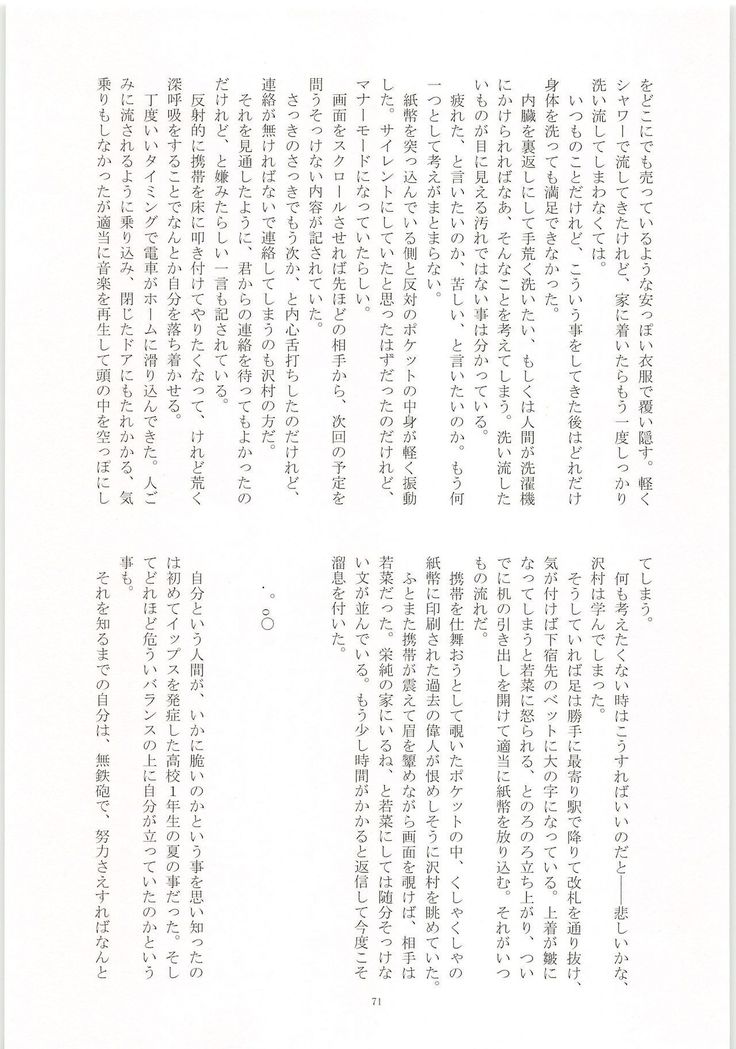 をどこにでも売っているような安っぽい衣服で覆い隠す。軽く
シャワーで流してきたけれど、家に着いたらもう一度しっかり
洗い流してしまわなくては。
いつものことだけれど、こういう事をしてきた後はどれだけ
身体を洗っても満足できなかった。
内臓を裏返しにして手荒く洗いたい、もしくは人間が洗濯機
にかけられればなあ、そんなことを考えてしまう。洗い流した
いものが目に見える汚れではない事は分かっている。
疲れた、と言いたいのか、苦しい、と言いたいのか。もう何
一つとして考えがまとまらない。
紙幣を突っ込んでいる側と反対のポケットの中身が軽く振動
した。サイレントにしていたと思ったはずだったのだけれど、
マナーモードになっていたらしい。
画面をスクロールさせれば先ほどの相手から、次回の予定を
問うそっけない内容が記されていた。
さっきのさっきでもう次か、と内心舌打ちしたのだけれど、
連絡が無ければないで連絡してしまうのも沢村の方だ。
それを見通したように、君からの連絡を待ってもよかったの
だけれど、と嫌みたらしい一言も記されている。
反射的に携帯を床に叩き付けてやりたくなって、けれど荒く
深呼吸をすることでなんとか自分を落ち着かせる。
丁度いいタイミングで電車がホームに滑り込んできた。人ご
みに流されるように乗り込み、閉じたドアにもたれかかる、気
乗りもしなかったが適当に音楽を再生して頭の中を空っぽにし
てしまう。
何も考えたくない時はこうすればいいのだと――悲しいかな、
沢村は学んでしまった。
そうしていれば足は勝手に最寄り駅で降りて改札を通り抜け、
気が付けば下宿先のベットに大の字になっている。上着が皺に
なってしまうと若菜に怒られる、とのろのろ立ち上がり、つい
でに机の引き出しを開けて適当に紙幣を放り込む。それがいつ
もの流れだ。
携帯を仕舞おうとして覗いたポケットの中、くしゃくしゃの
紙幣に印刷された過去の偉人が恨めしそうに沢村を眺めていた。
ふとまた携帯が震えて眉を顰めながら画面を覗けば、相手は
若菜だった。栄純の家にいるね、と若菜にしては随分そっけな
い文が並んでいる。もう少し時間がかかると返信して今度こそ
溜息を付いた。
．。o○
自分という人間が、いかに脆いのかという事を思い知ったの
は初めてイップスを発症した高校１年生の夏の事だった。そし
てどれほど危ういバランスの上に自分が立っていたのかという
事も。
それを知るまでの自分は、無鉄砲で、努力さえすればなんと
71